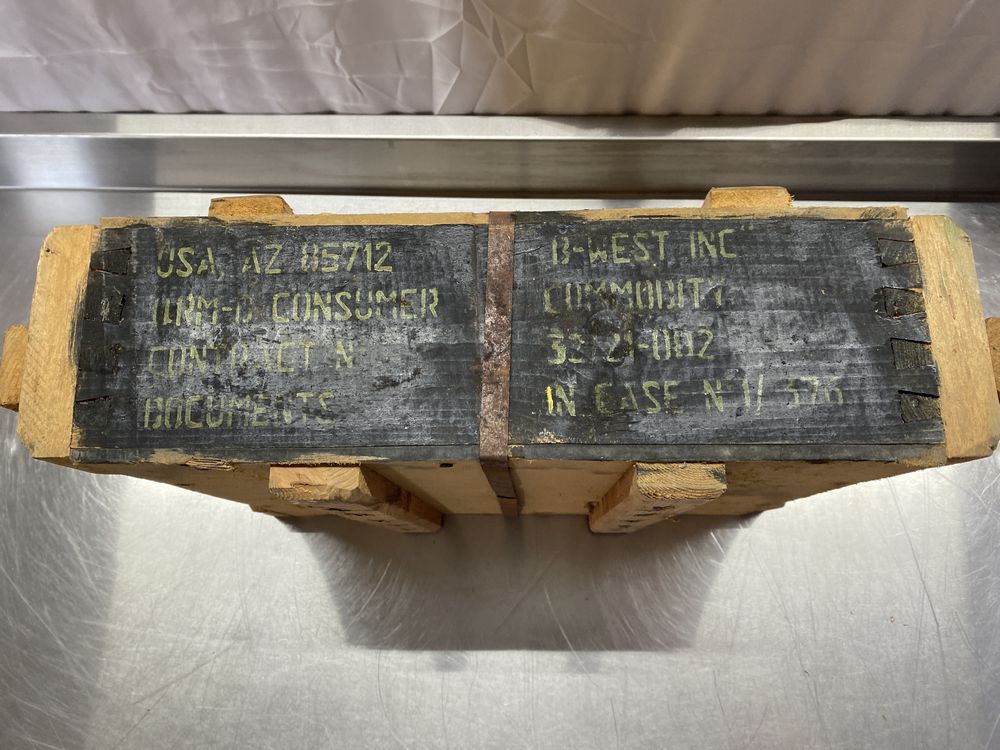 USA, AZ 85712
ORM-D CONSUMER
CONTRACT N
DOCUMENTS
B-WEST INC"
COMMODITY
IN CASE N 1/ 376